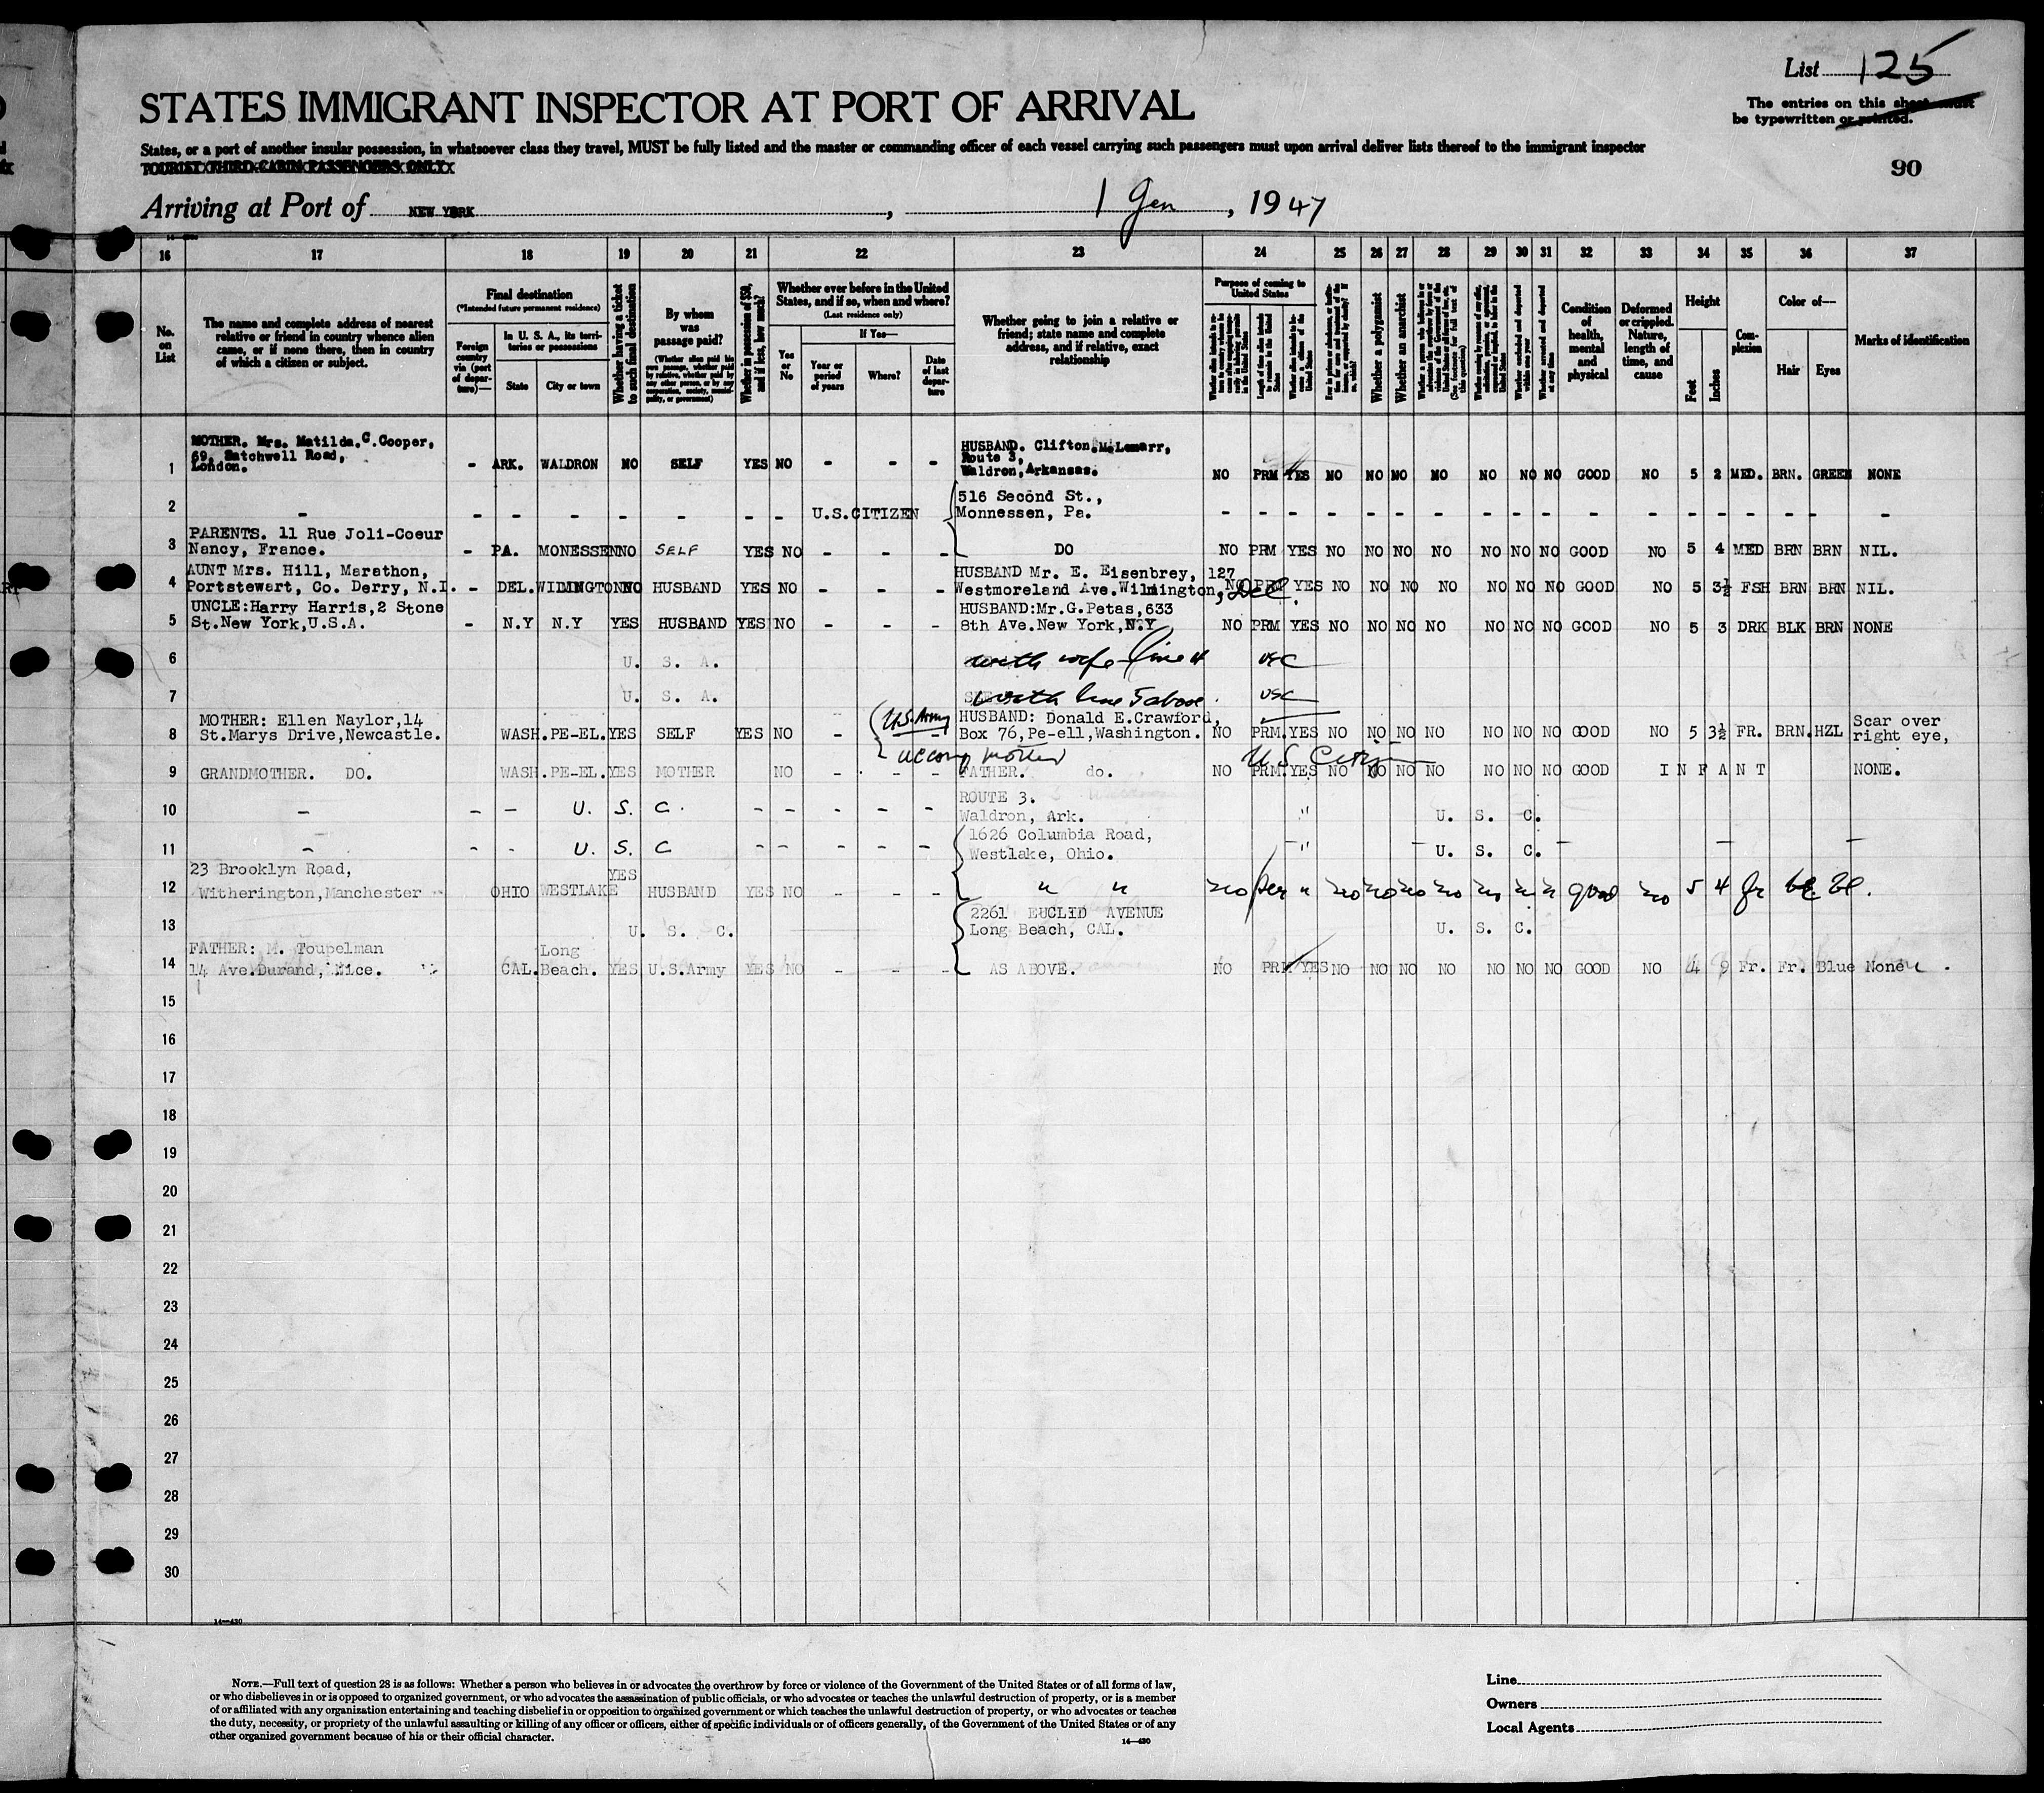 List 125
STATES IMMIGRANT INSPECTOR AT PORT OF ARRIVAL
The entries on this sheet must
be typewritten or printed.
States, or a port of another insular possession, in whatsoever class they travel, MUST be fully listed and the master or commanding officer of each vessel carrying such passengers must upon arrival deliver lists thereof to the immigrant inspector
TOURIST THIRD CABIN PASSENGERS ONLY
90
Arriving at Port of NEW YORK, 1 Jan, 1947
16 17 18 19 20 21 22 23 24 25 26 27 28 29 30 31 32 33 34 35 36 37
No. on List
The name and complete address of nearest relative or friend in country whence alien came, or if none there, then in country of which a citizen or subject.
Final destination
(*Intended future permanent residence)
Foreign country via (port of departure)—
In U. S. A., its territories or possessions
State
City or town
Whether having a ticket to such final destination
By whom was passage paid?
(Whether alien paid his own passage, whether paid by relative, whether paid by any other person, or by any corporation, society, municipality, or government)
Whether in possession of $50, and if less, how much?
Whether ever before in the United States, and if so, when and where?
(Last residence only)
Yes or No
If Yes—
Year or period of years
Where?
Date of last departure
Whether going to join a relative or friend; state name and complete address, and if relative, exact relationship
Purpose of coming to United States
Length of time alien intends to remain in the United States
Whether a polygamist
Whether an anarchist
Condition of health, mental and physical
Deformed or crippled. Nature, length of time, and cause
Height
Feet
Inches
Complexion
Color of—
Hair
Eyes
Marks of identification
1 MOTHER. Mrs. Matilda.C.Cooper, 69, Satchwell Road, London. - ARK. WALDRON NO SELF YES NO - - - HUSBAND. Clifton.M.Lemarr, Route 3, Waldron,Arkansas. NO PRM YES NO NO NO NO NO NO NO GOOD NO 5 2 MED. BRN. GREEN NONE
2 - - - - - - - - U.S.CITIZEN 516 Second St., Monnessen, Pa. - - - - - - - - - - - - - - - - - -
3 PARENTS. 11 Rue Joli-Coeur Nancy, France. - PA. MONESSEN NO SELF YES NO - - - DO NO PRM YES NO NO NO NO NO NO NO GOOD NO 5 4 MED BRN BRN NIL.
4 AUNT Mrs. Hill, Marathon, Portstewart, Co. Derry, N.I. - DEL. WILMINGTON NO HUSBAND YES NO - - - HUSBAND Mr. E. Eisenbrey, 127 Westmoreland Ave.Wilmington, Del. NO PRM YES NO NO NO NO NO NO NO GOOD NO 5 3½ FSH BRN BRN NIL.
5 UNCLE:Harry Harris,2 Stone St.New York,U.S.A. - N.Y N.Y YES HUSBAND YES NO - - - HUSBAND:Mr.G.Petas,633 8th Ave.New York,N.Y NO PRM YES NO NO NO NO NO NO NO GOOD NO 5 3 DRK BLK BRN NONE
6 U. S. A. with wife line 4 USC
7 U. S. A. with line 5 above. USC
8 MOTHER: Ellen Naylor,14 St.Marys Drive,Newcastle. WASH. PE-EL. YES SELF YES NO - U.S. Army - HUSBAND: Donald E.Crawford, Box 76,Pe-ell,Washington. NO PRM. YES NO NO NO NO NO NO NO GOOD NO 5 3½ FR. BRN. HZL Scar over right eye,
9 GRANDMOTHER. DO. WASH. PE-EL. YES MOTHER NO - - - accomp mother FATHER. do. U.S Citizen NO PRM. YES NO NO NO NO NO NO NO GOOD INFANT NONE.
10 - - - U. S. C. - - - - - ROUTE 3. Waldron, Ark. " U. S. C.
11 - - - U. S. C - - - - - 1626 Columbia Road, Westlake, Ohio. -"- - U. S. C. - - -
12 23 Brooklyn Road, Witherington,Manchester OHIO WESTLAKE YES HUSBAND YES NO - - - " " no per " no no no no no n n good no 5 4 fr bl bl.
13 U. S. C. 2261 EUCLID AVENUE Long Beach, CAL. U. S. C.
14 FATHER: M. Toupelman 14 Ave.Durand, Nice. CAL. Long Beach. YES U.S.Army YES NO - - - AS ABOVE. NO PRM YES NO NO NO NO NO NO NO GOOD NO 4 9 Fr. Fr. Blue None
15
16
17
18
19
20
21
22
23
24
25
26
27
28
29
30
14—430
NOTE.—Full text of question 28 is as follows: Whether a person who believes in or advocates the overthrow by force or violence of the Government of the United States or of all forms of law,
or who disbelieves in or is opposed to organized government, or who advocates the assassination of public officials, or who advocates or teaches the unlawful destruction of property, or is a member
of or affiliated with any organization entertaining and teaching disbelief in or opposition to organized government or which teaches the unlawful destruction of property, or who advocates or teaches
the duty, necessity, or propriety of the unlawful assaulting or killing of any officer or officers, either of specific individuals or of officers generally, of the Government of the United States or of any
other organized government because of his or their official character.
14—430
Line
Owners
Local Agents